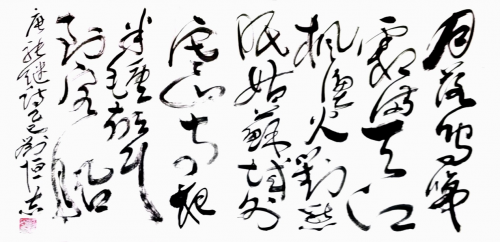 月落烏啼
霜滿天江
楓漁火對愁
眠姑蘇城外
寒山寺夜
半鐘聲
到客船
唐張繼詩 劉恒